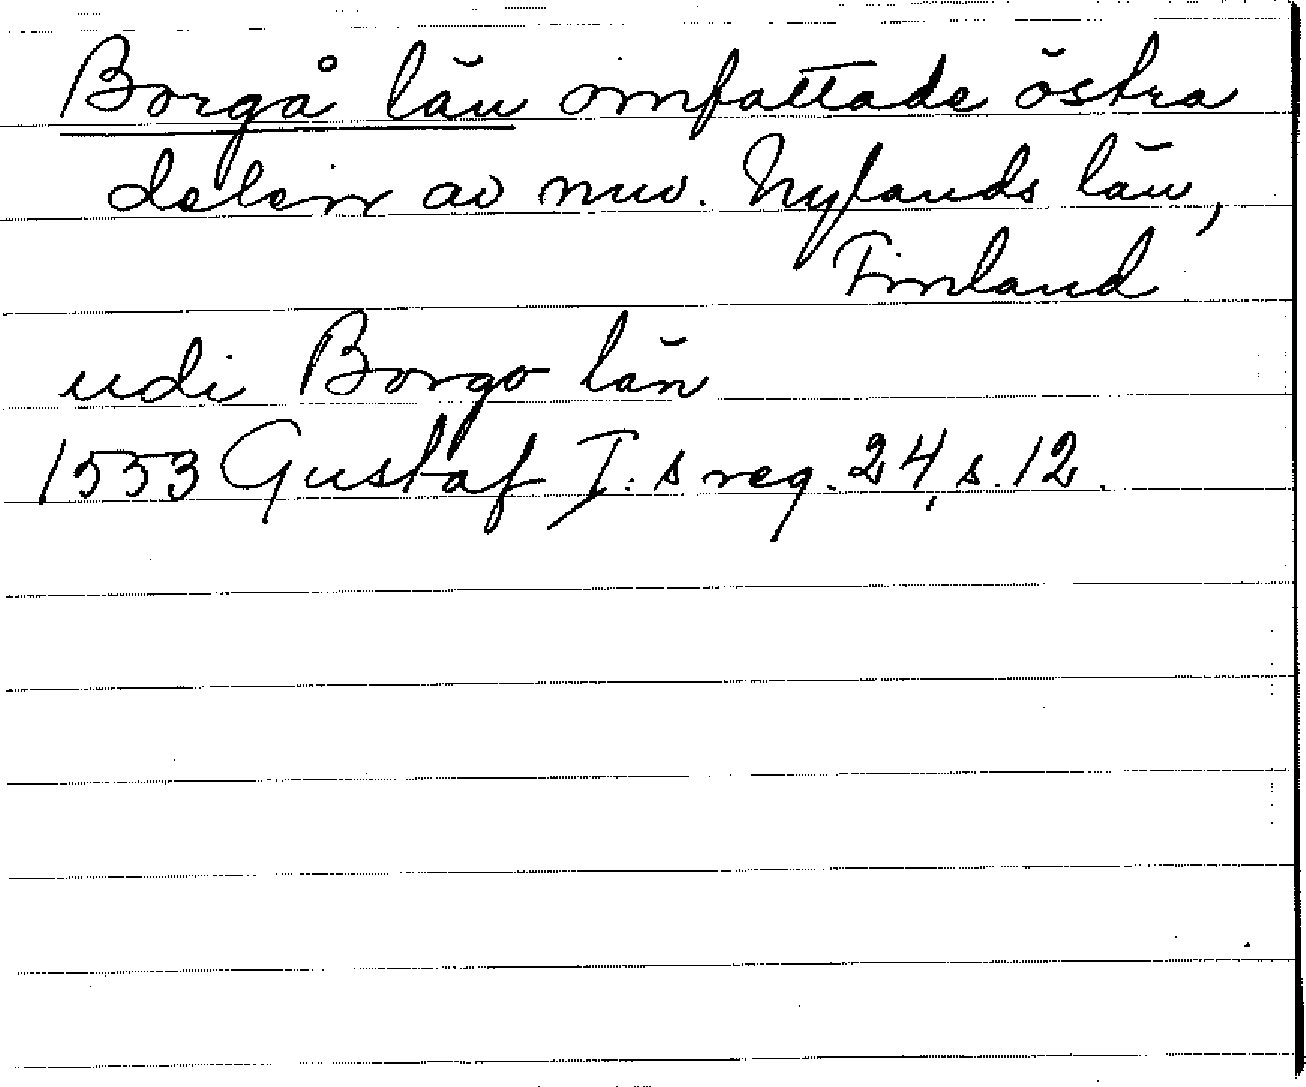 Borgå län omfattade östra
delen av nuv. Nylands län,
Finland
udi Borgo län
1553 Gustaf I:s reg. 24, s. 12.